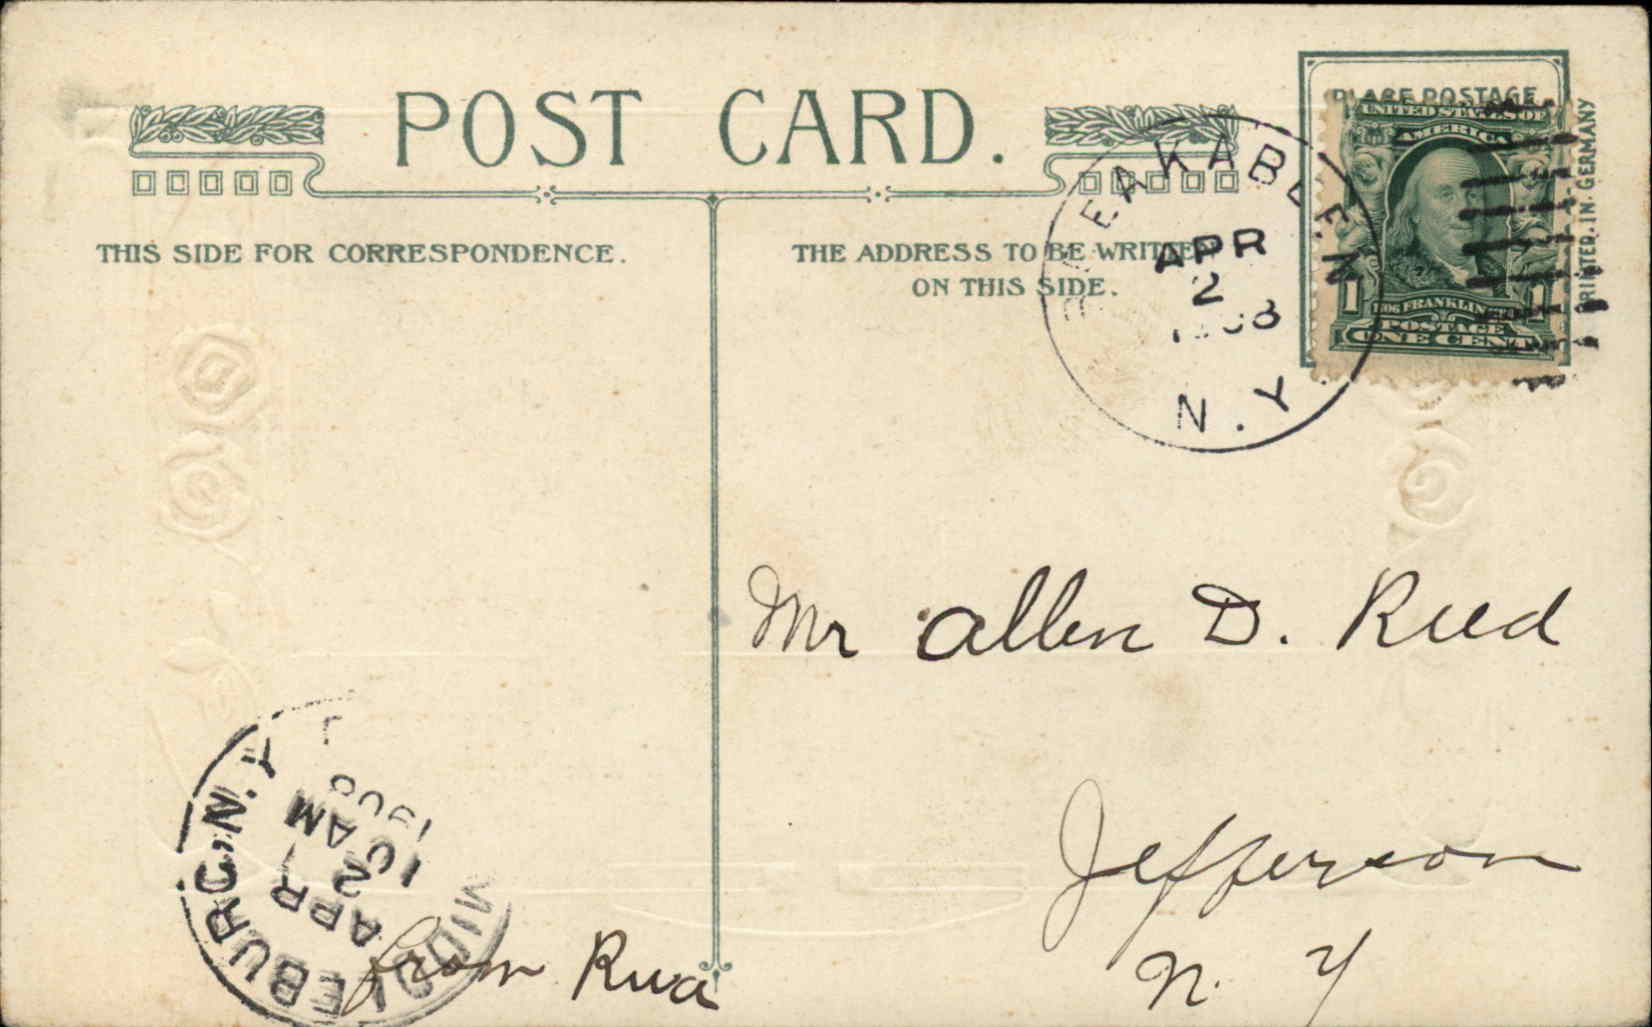 POST CARD.
THIS SIDE FOR CORRESPONDENCE.
THE ADDRESS TO BE WRITTEN
ON THIS SIDE.
PLACE POSTAGE
UNITED STATES OF
AMERICA
1706 FRANKLIN
POSTAGE
1 1
ONE CENT
PRINTED.IN.GERMANY
BREAKABEEN
APR
2
1908
N.Y.
Mr Allen D. Reed
Jefferson
N. Y
MIDDLEBURG, N.Y.
APR
2
10 AM
1908
from Reva